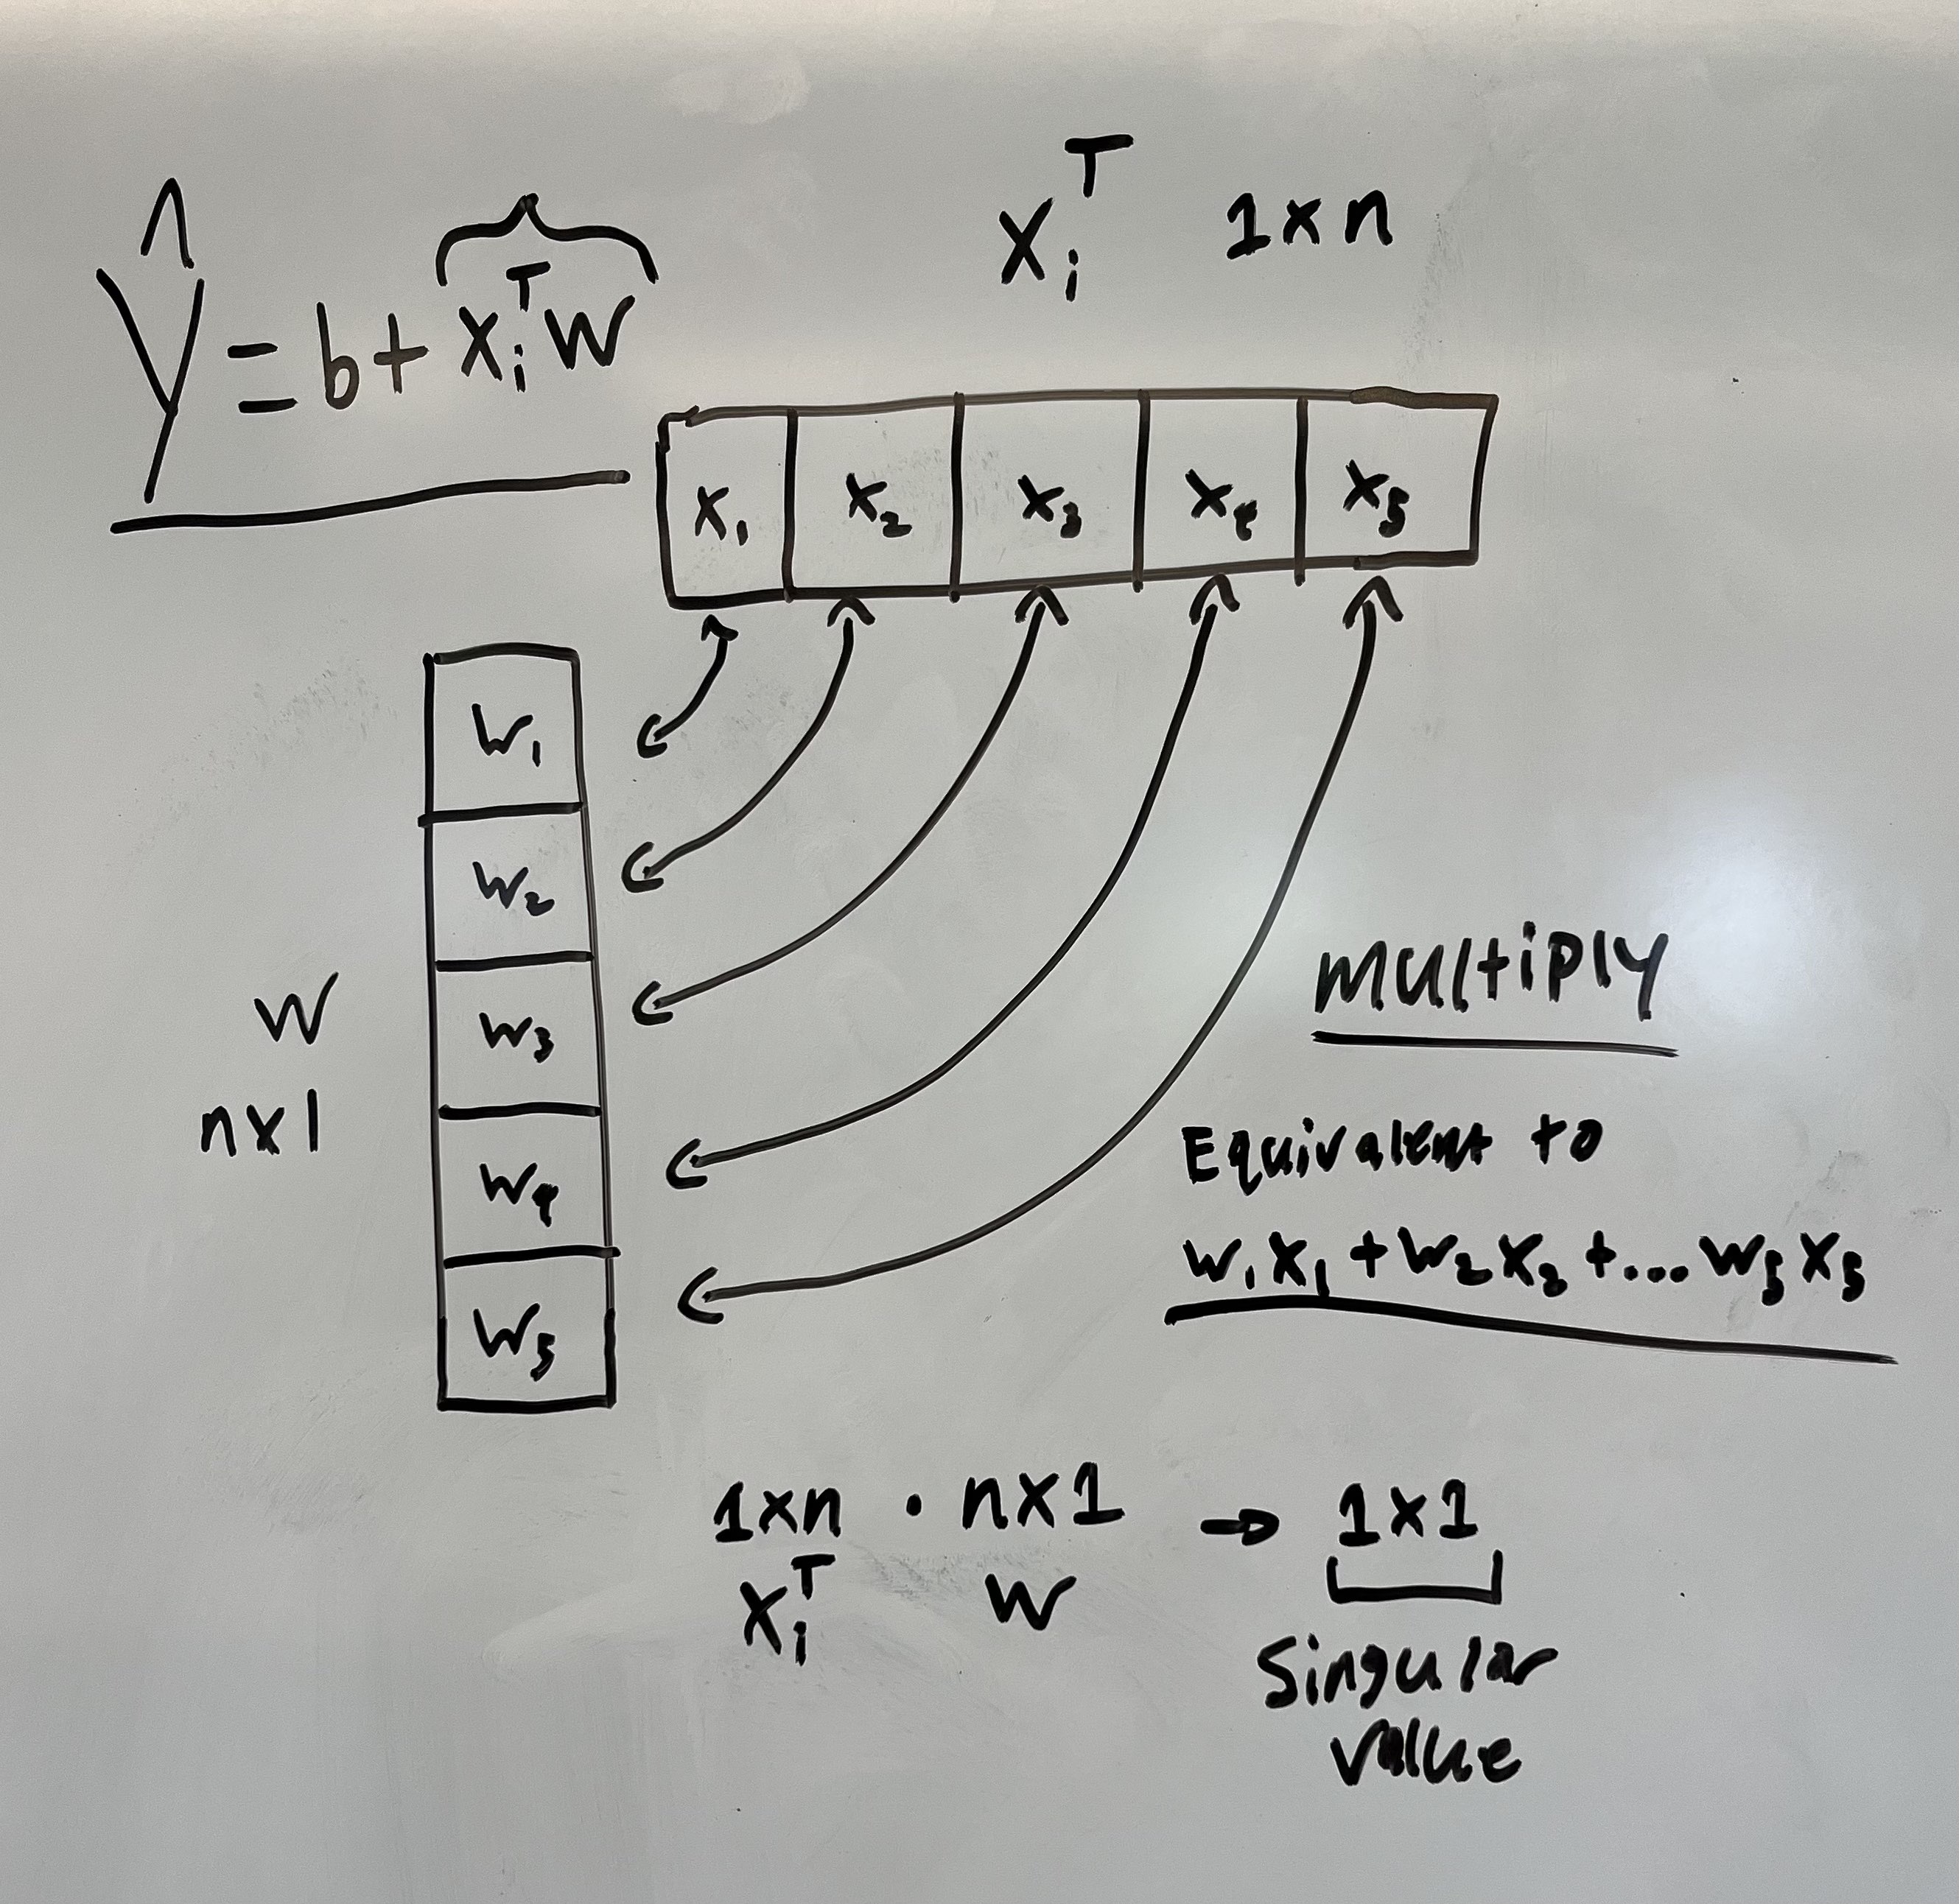 Ŷ = b + Xᵢᵀ W
Xᵢᵀ 1 x n
X₁ X₂ X₃ X₄ X₅
W₁
W₂
W₃
W₄
W₅
W
n x 1
multiply
Equivalent to
W₁X₁ + W₂X₂ + ... W₅X₅
1xn · nx1 → 1x1
Xᵢᵀ W
Singular
value